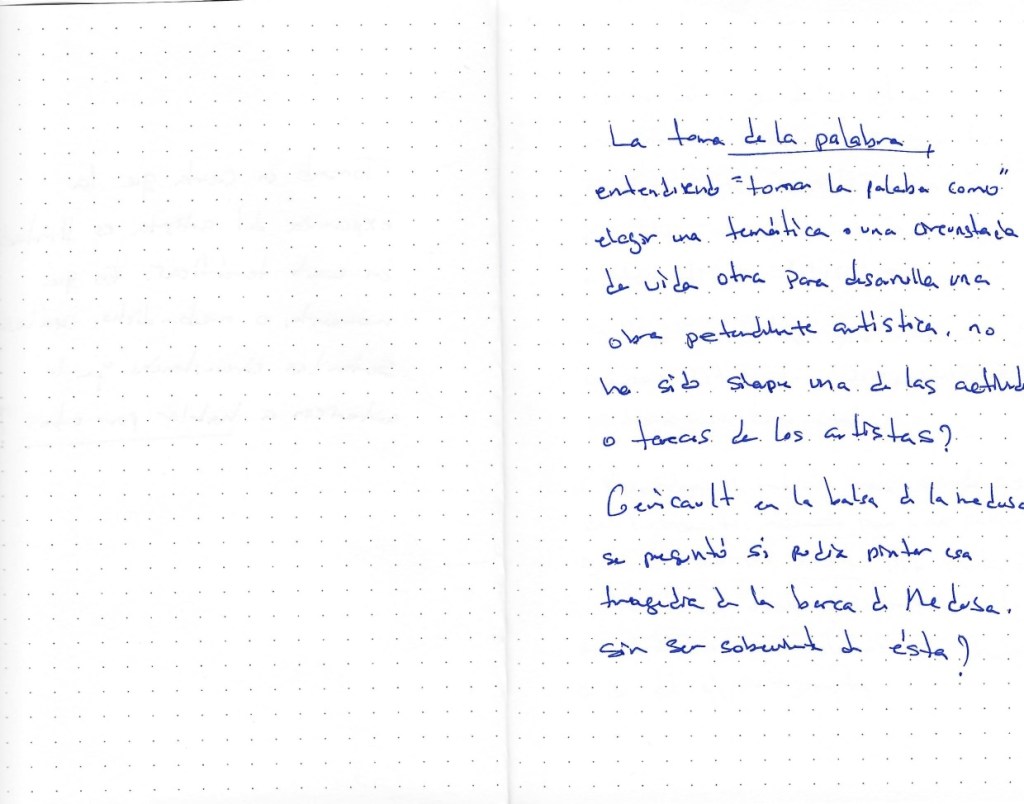 La toma de la palabra,
entendiendo "tomar la palabra como"
elegir una temática o una circunstancia
de vida otra para desarrollar una
obra pretendidamente artística, no
ha sido siempre una de las actitud
o tareas de los artistas?
Gericault en la balsa de la medusa
se preguntó si podía pintar esa
tragedia de la barca de Medusa.
sin ser sobreviviente de ésta?